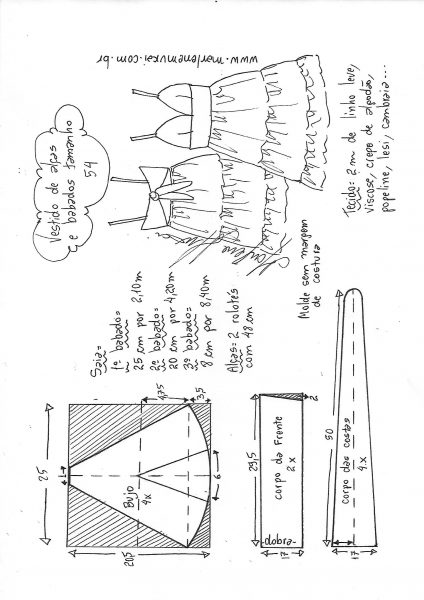 Vestido de alças
e babados tamanho
54
www.marlenemukai.com.br
Tecido: 2 m de linho leve,
viscose, crepe de algodão,
popeline, lesi, cambraia...
Saia=
1º babado=
25 cm por 2,10m
2º babado=
20 cm por 4,20m
3º babado=
8 cm por 8,40m
Alças= 2 rolotês
com 48 cm
Molde sem margem
de costura
25
1
4,75
3,5
Bujo
4x
6
20,5
29,5
2
corpo da Frente
2x
-dobra-
17
50
corpo das costas
4x
17